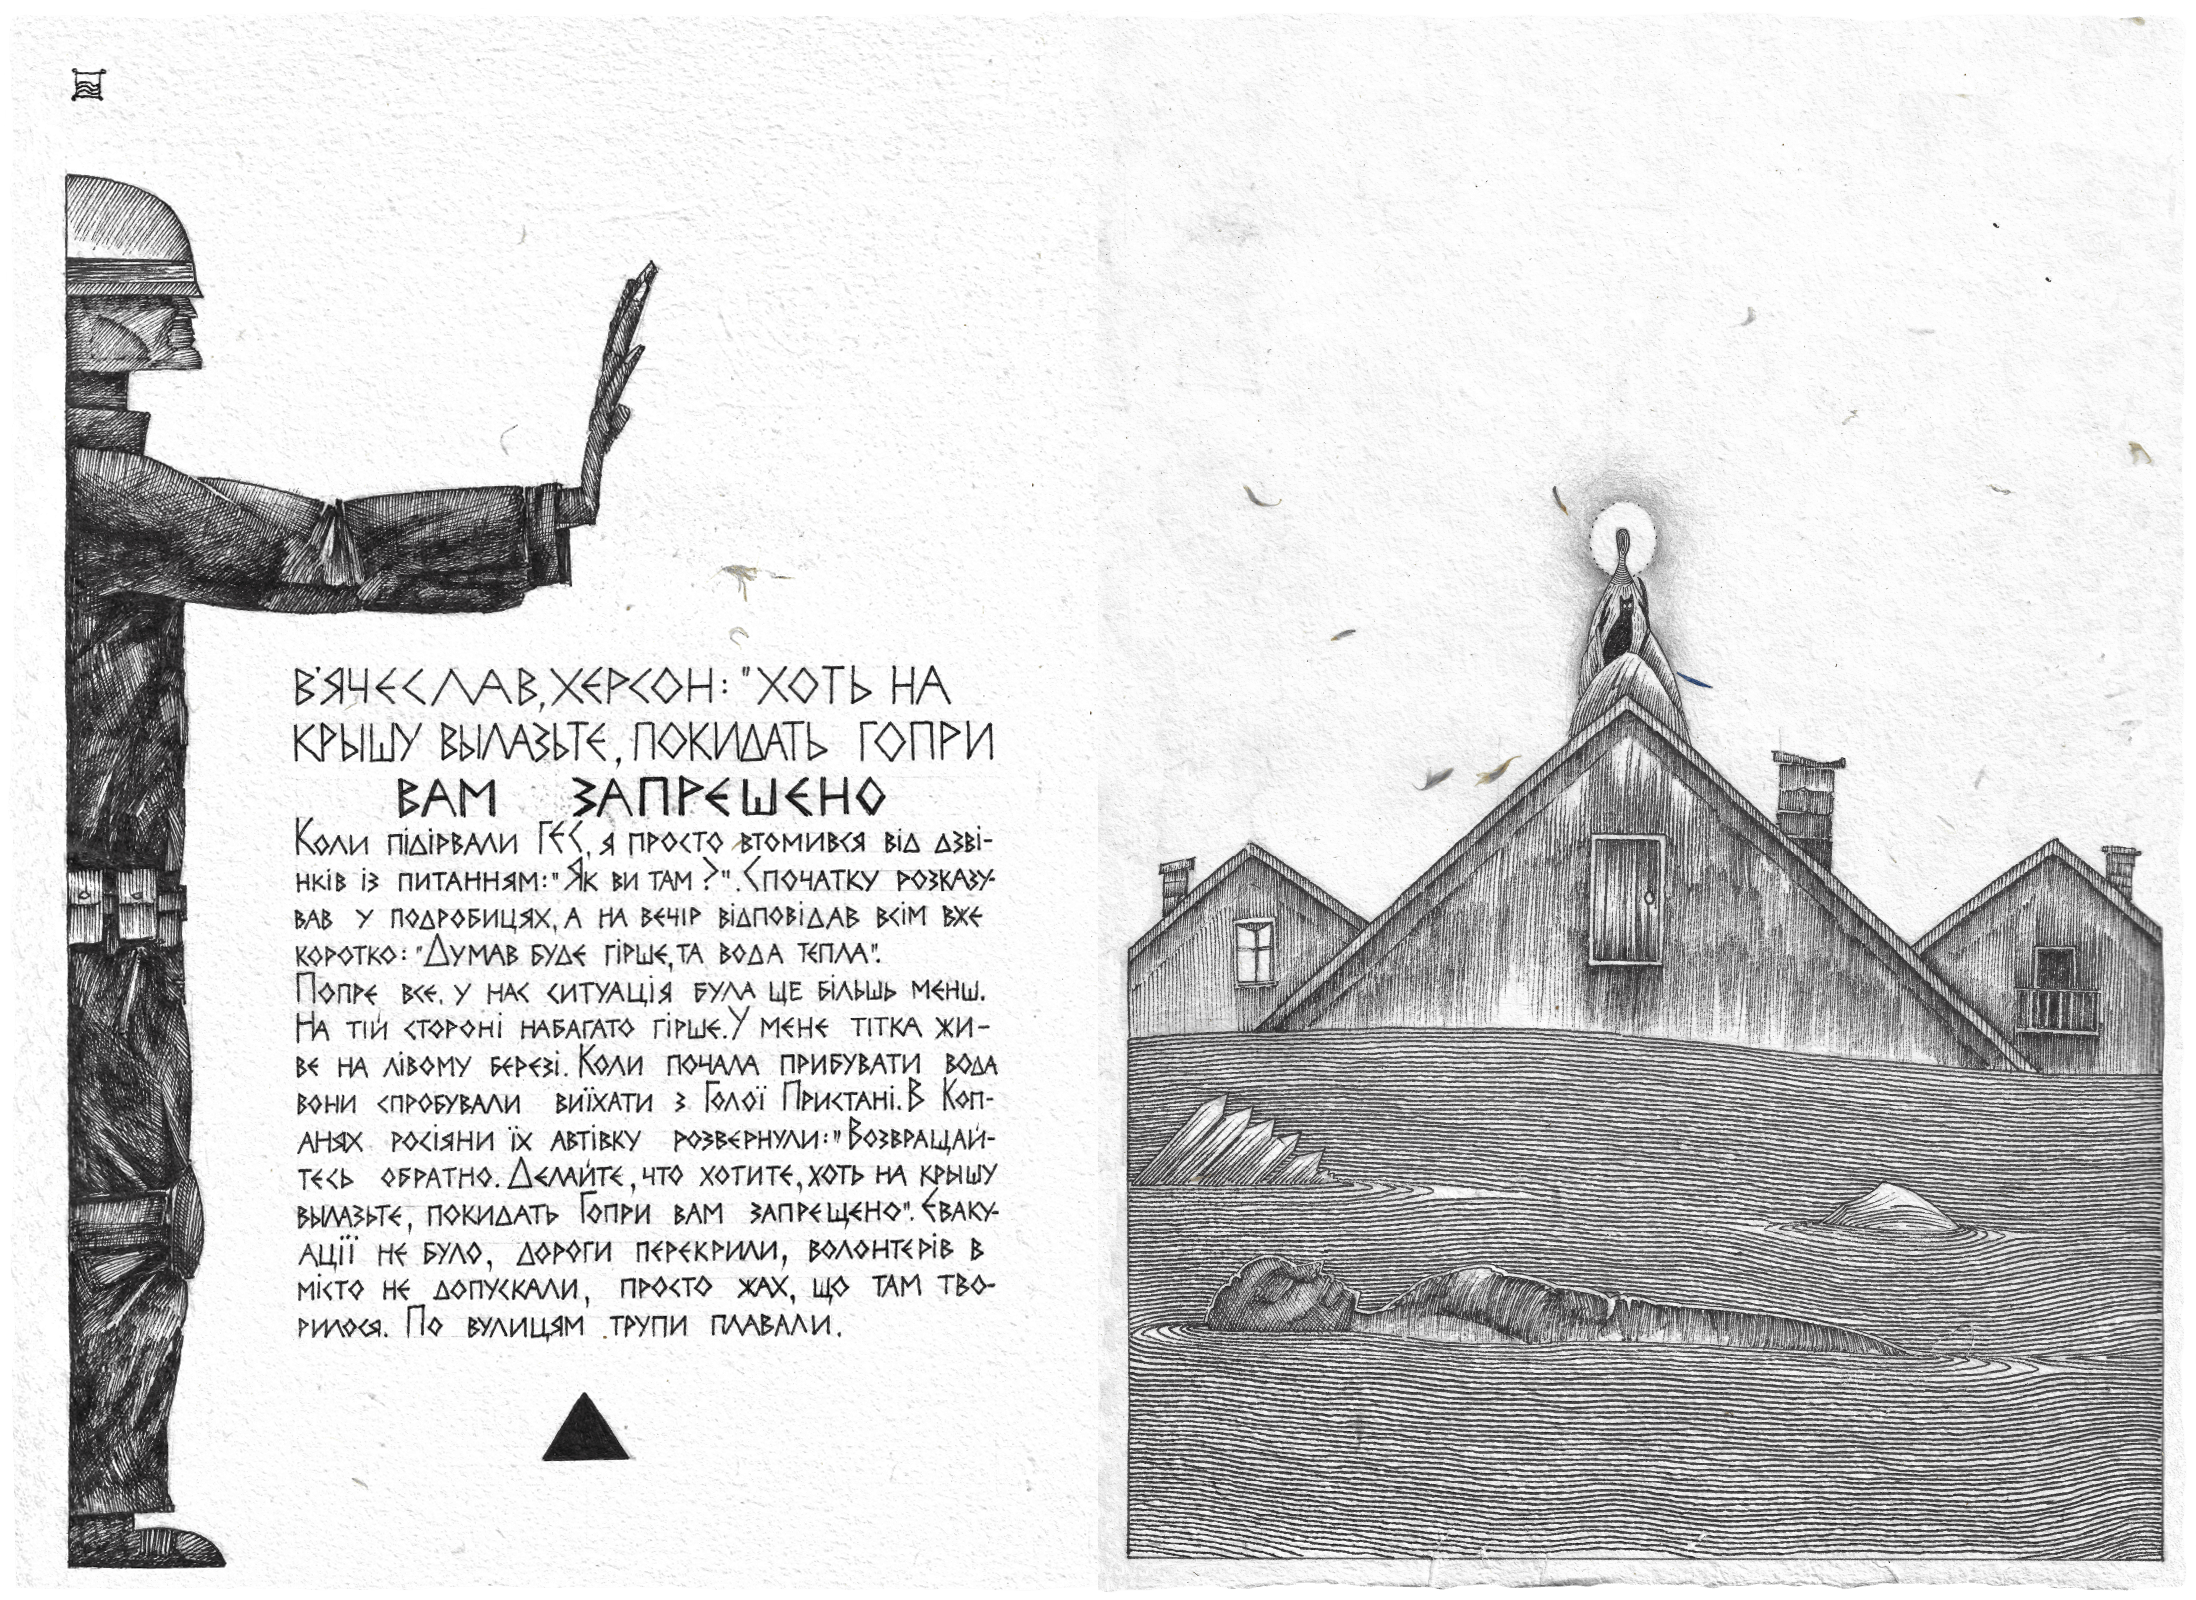 В'ЯЧЕСЛАВ, ХЕРСОН: "ХОТЬ НА
КРЫШУ ВЫЛАЗЬТЕ, ПОКИДАТЬ ГОПРИ
ВАМ ЗАПРЕШЕНО
Коли підірвали ГЕС, я просто втомився від дзві-
нків із питанням: "Як ви там?". Спочатку розказу-
вав у подробицях, а на вечір відповідав всім вже
коротко: "Думав буде гірше, та вода тепла".
Попре все. у нас ситуація була ще більшь менш.
На тій стороні набагато гірше. У мене тітка жи-
ве на лівому березі. Коли почала прибувати вода
вони спробували виїхати з Голої Пристані. В Коп-
анях росіяни їх автівку розвернули: "Возвращай-
тесь обратно. Делайте, что хотите, хоть на крышу
вылазьте, покидать Гопри вам запрещено". Еваку-
ації не було, дороги перекрили, волонтерів в
місто не допускали, просто жах, що там тво-
рилося. По вулицям трупи плавали.